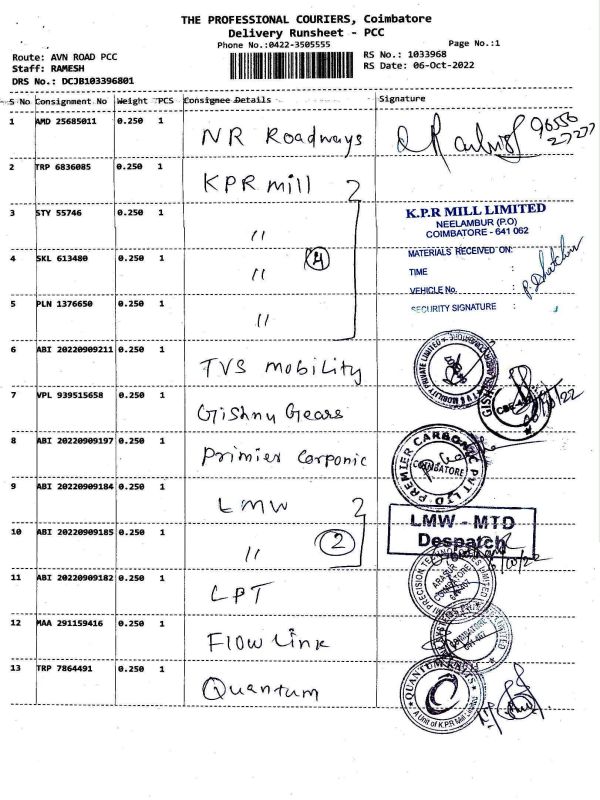 THE PROFESSIONAL COURIERS, Coimbatore
Delivery Runsheet - PCC
Phone No.:0422-3505555
Page No.:1
Route: AVN ROAD PCC
Staff: RAMESH
DRS No.: DCJB103396801
RS No.: 1033968
RS Date: 06-Oct-2022
S No Consignment No Weight PCS Consignee Details Signature
1 AMD 25685011 0.250 1 NR Roadways
2 TRP 6836085 0.250 1 KPR mill
3 STY 55746 0.250 1 "
4 SKL 613480 0.250 1 " 4
5 PLN 1376650 0.250 1 "
K.P.R MILL LIMITED
NEELAMBUR (P.O)
COIMBATORE - 641 062
MATERIALS RECEIVED ON:
TIME :
VEHICLE No. :
SECURITY SIGNATURE :
6 ABI 20220909211 0.250 1 TVS mobility
7 VPL 939515658 0.250 1 Gishnu Gears
8 ABI 20220909197 0.250 1 Primier Carponic
PREMIER CARBONIC PVT LTD
COIMBATORE
9 ABI 20220909184 0.250 1 LMW
10 ABI 20220909185 0.250 1 " 2
LMW - MTD
Despatch
11 ABI 20220909182 0.250 1 LPT
12 MAA 291159416 0.250 1 Flow Link
13 TRP 7864491 0.250 1 Quantum
A Unit of K.P.R Mill Limited